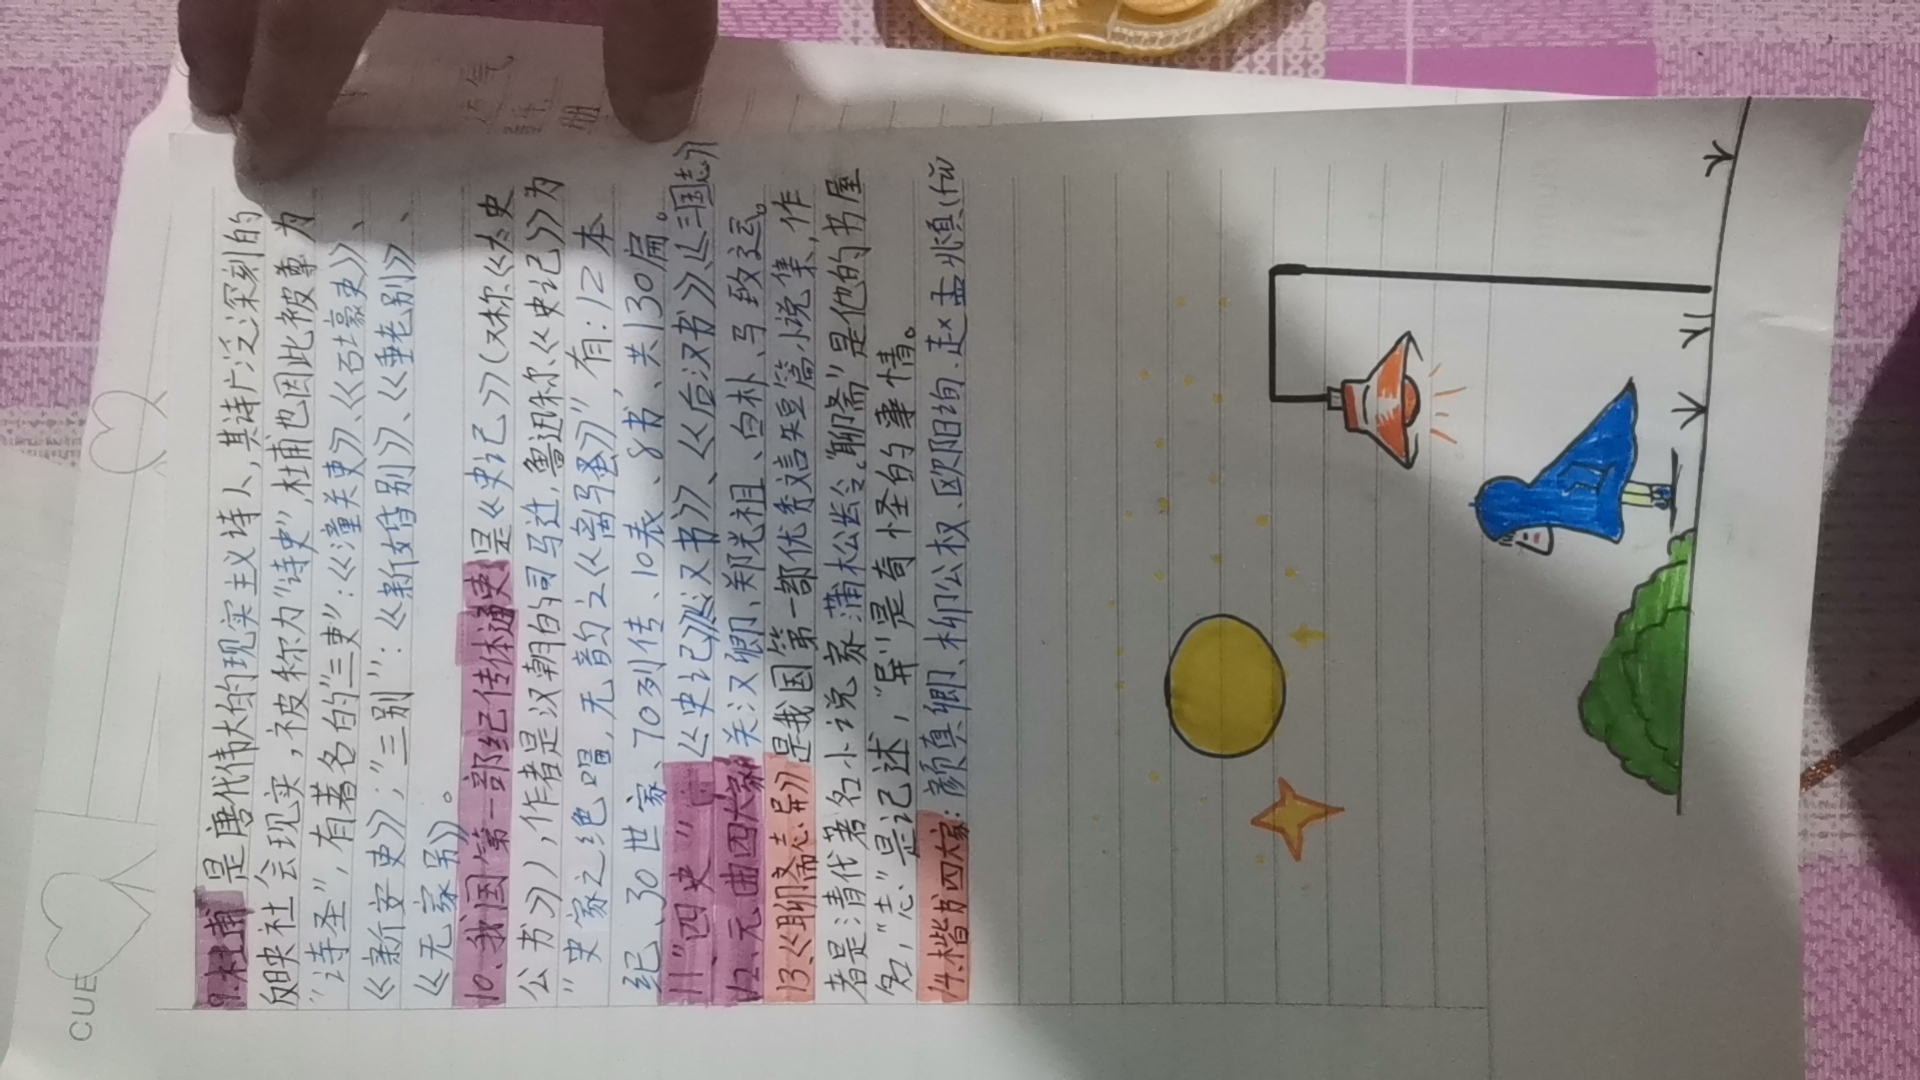 CUE
9.杜甫是唐代伟大的现实主义诗人,其诗广泛深刻的
反映社会现实,被称为"诗史",杜甫也因此被尊为
"诗圣",有著名的"三吏":《潼关吏》、《石壕吏》、
《新安吏》;"三别":《新婚别》、《垂老别》、
《无家别》。
10、我国第一部纪传体通史是《史记》(又称《太史
公书》),作者是汉朝的司马迁,鲁迅称《史记》为
"史家之绝唱,无韵之《离骚》"有:12本
纪、30世家、70列传、10表、8书、共130篇。
11"四史"《史记》《汉书》、《后汉书》《三国志》
12、元曲四大家关汉卿、郑光祖、白朴、马致远。
13、《聊斋志异》是我国第一部优秀文言短篇小说集,作
者是清代著名小说家蒲松龄。"聊斋"是他的书屋
名,"志"是记述,"异"是奇怪的事情。
14.楷书四大家:颜真卿、柳公权、欧阳询、赵孟頫